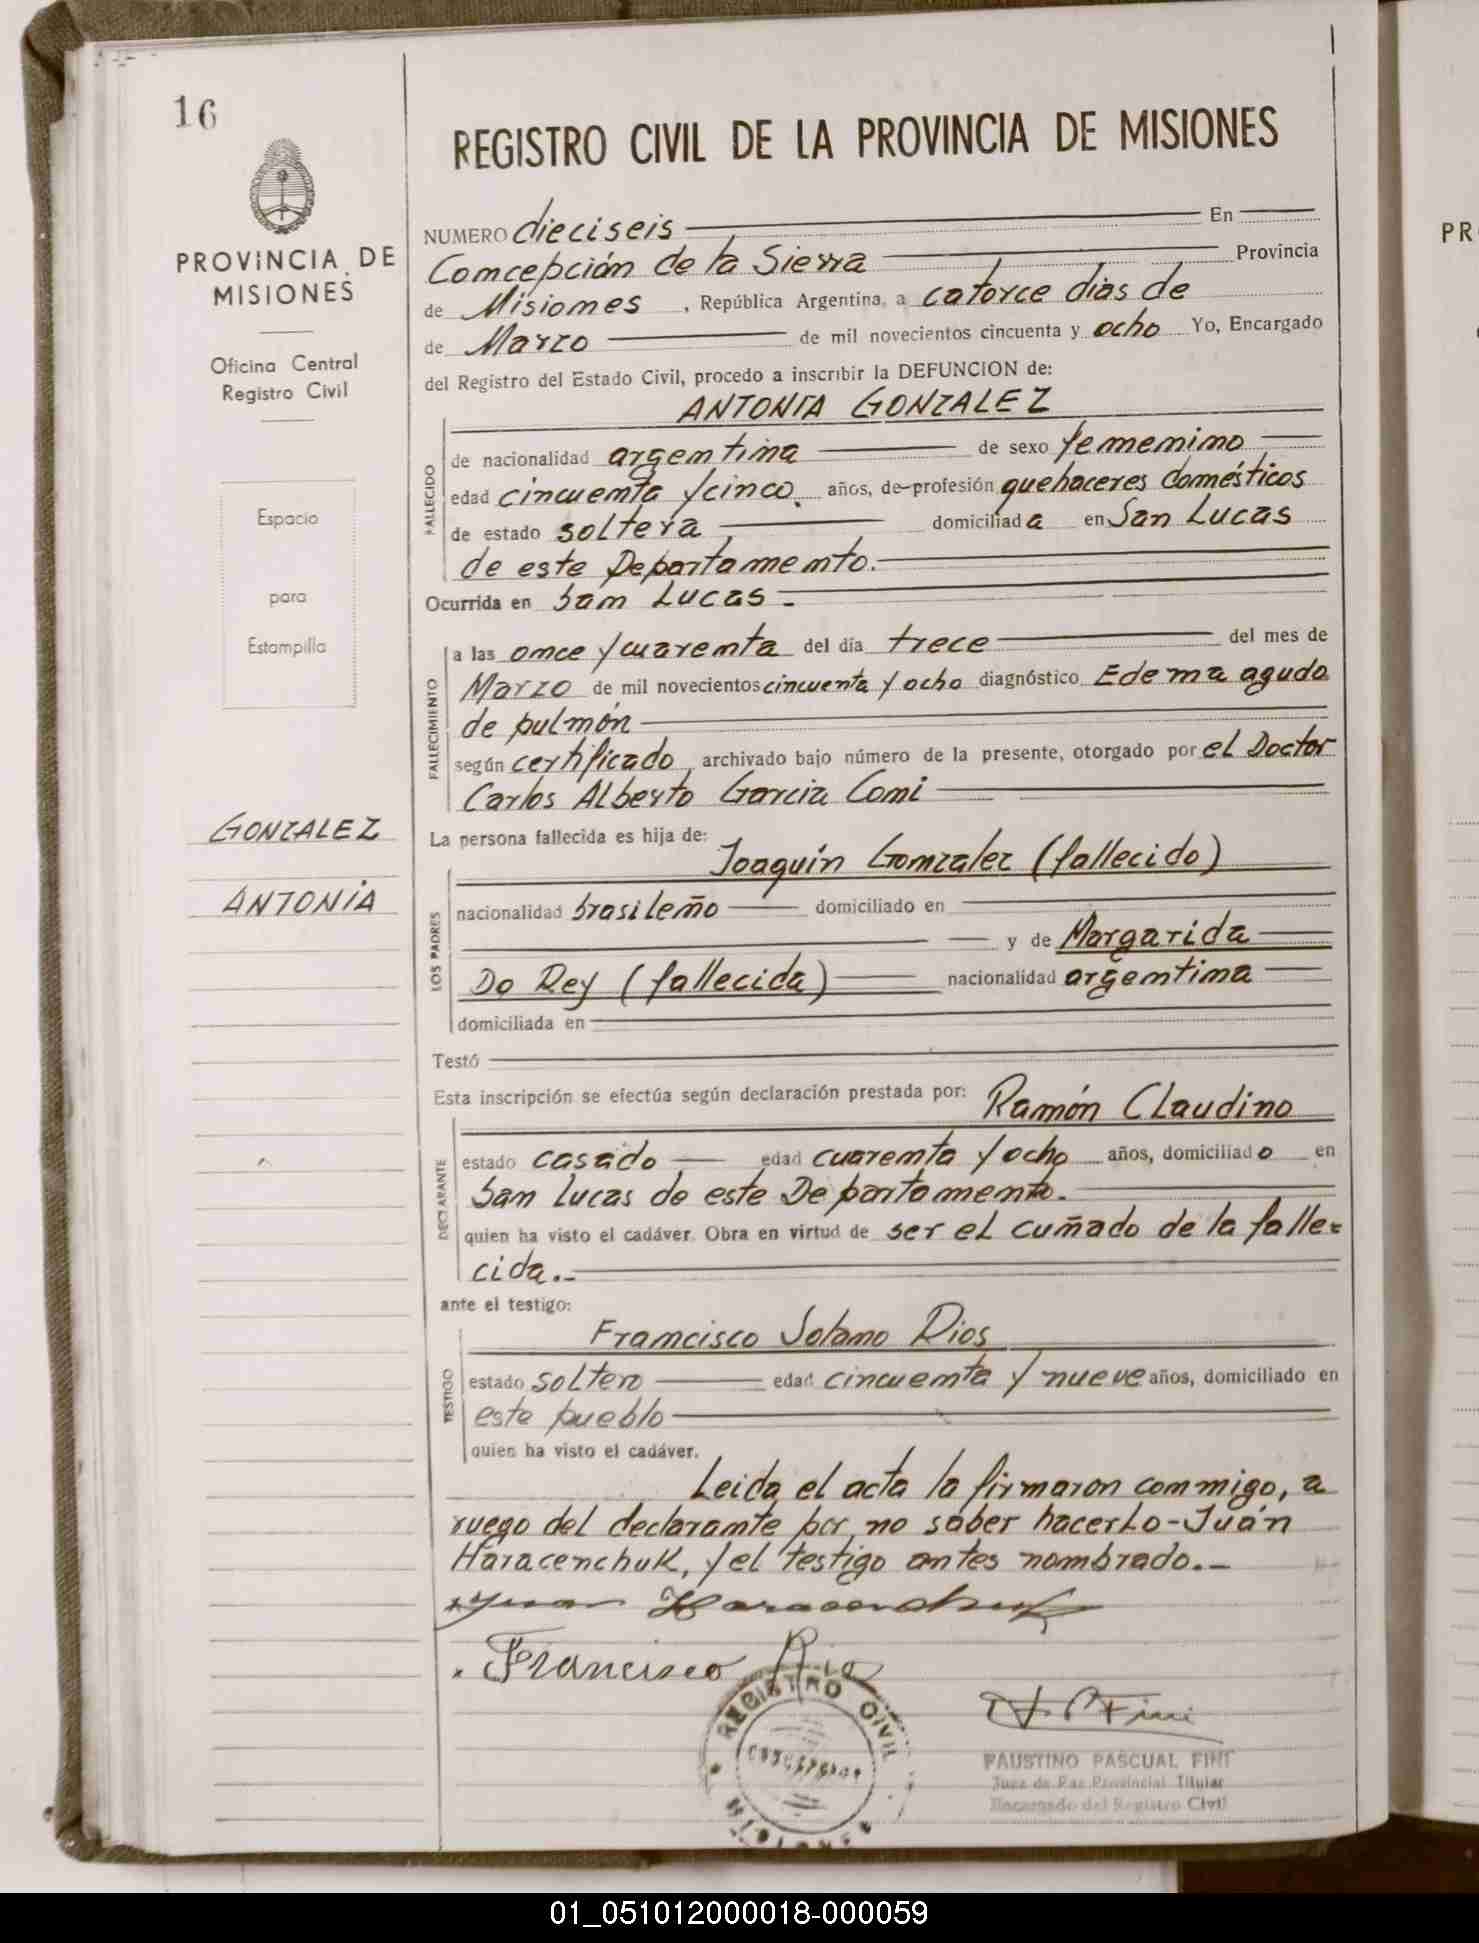 16
PROVINCIA DE
MISIONES
Oficina Central
Registro Civil
Espacio
para
Estampilla
GONZALEZ
ANTONIA
REGISTRO CIVIL DE LA PROVINCIA DE MISIONES
NUMERO dieciseis En
Comcepción de la Sierra Provincia
de Misiomes , República Argentina, a catorce dias de
de Marzo de mil novecientos cincuenta y ocho Yo, Encargado
del Registro del Estado Civil, procedo a inscribir la DEFUNCION de:
ANTONIA GONZALEZ
FALLECIDO
de nacionalidad argemtima de sexo fememimo
edad cincuemta y cinco. años, de profesión quehaceres domésticos
de estado soltera domiciliada en San Lucas
de este Departamemto.
Ocurrida en Sam Lucas.-
FALLECIMIENTO
a las omce y cuaremta del día trece del mes de
Marzo de mil novecientos cincuenta y ocho diagnóstico Edema agudo
de pulmón
según certificado archivado bajo número de la presente, otorgado por el Doctor
Carlos Alberto Garcia Comi
La persona fallecida es hija de:
LOS PADRES
Joaquín Gomzalez (fallecido)
nacionalidad brasileño domiciliado en
y de Margarida
Do Rey (fallecida) nacionalidad argemtima
domiciliada en
Testó
Esta inscripción se efectúa según declaración prestada por: Ramón Claudino
DECLARANTE
estado casado edad cuaremta y ocho años, domiciliado en
Sam Lucas de este Departamemto.
quien ha visto el cadáver. Obra en virtud de ser el cuñado de la falle-
cida.-
ante el testigo:
Framcisco Solamo Rios
TESTIGO
estado soltero edad cincuemta y nueve años, domiciliado en
este pueblo
quien ha visto el cadáver.
Leida el acta la firmaron commigo, a
ruego del declaramte por no saber hacerlo-Juán
Haracenchuk, y el testigo antes nombrado.-
Juan Haracenchuk
Francisco Rio
REGISTRO CIVIL
FAUSTINO PASCUAL FINI
Juez de Paz Provincial Titular
Encargado del Registro Civil
PR
01_051012000018-000059